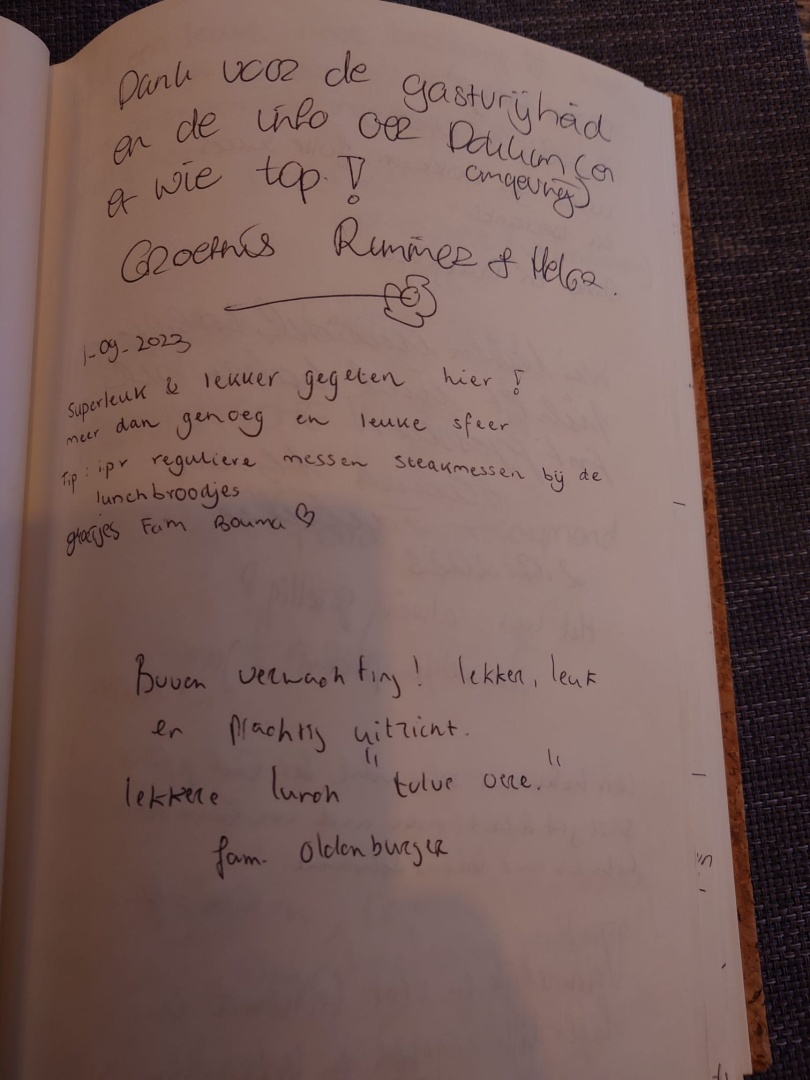 Dank voor de gasturijheid
en de info oer Dokkum (en
omgeving)
et wie top.!
Groetnis Rimmer & Helga.
1-09-2023
superleuk & lekker gegeten hier !
meer dan genoeg en leuke sfeer
Tip: ipv reguliere messen steakmessen bij de
lunchbroodjes
groetjes Fam Bouma ♡
Boven verwachting! lekker, leuk
en prachtig uitzicht.
lekkere lunch "tolve oere."
fam. Oldenburger